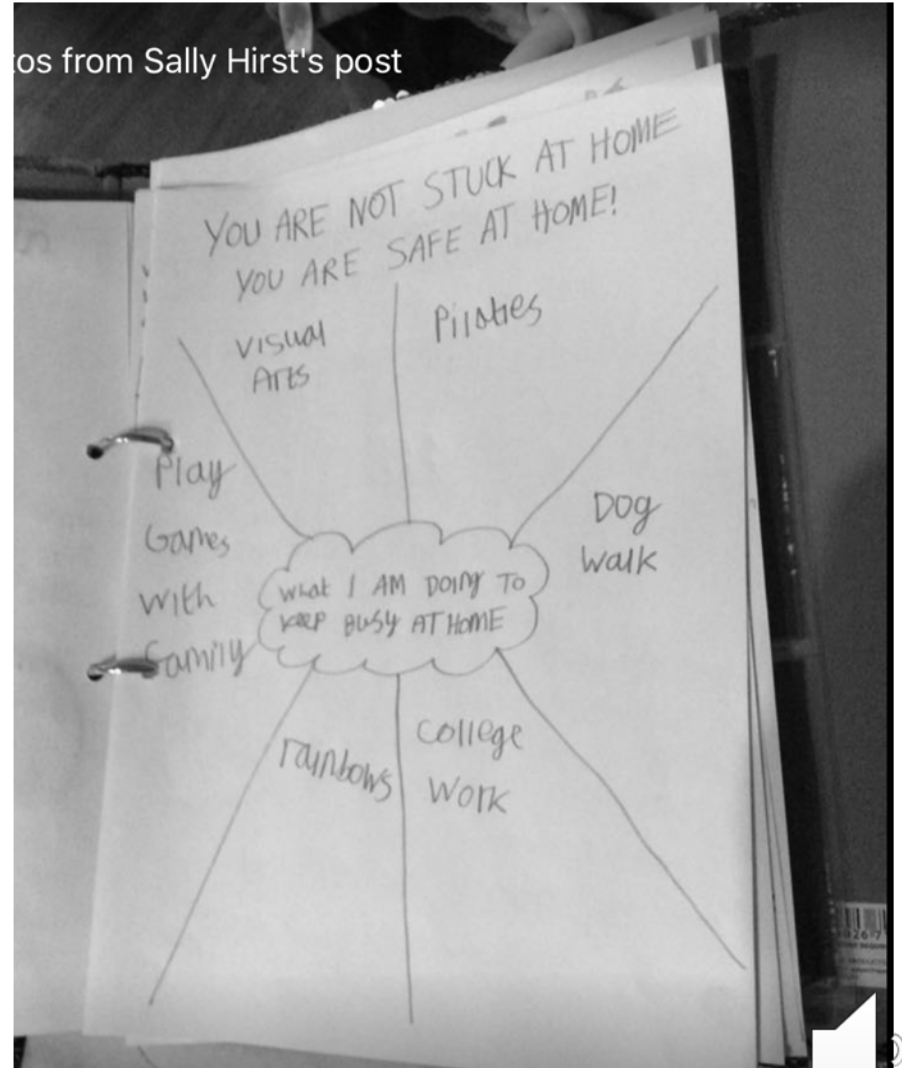 os from Sally Hirst's post
YOU ARE NOT STUCK AT HOME
YOU ARE SAFE AT HOME!
Visual
Arts
Pilates
Play
Games
With
Family
Dog
Walk
What I AM DOING TO
KEEP BUSY AT HOME
rainbows
College
Work